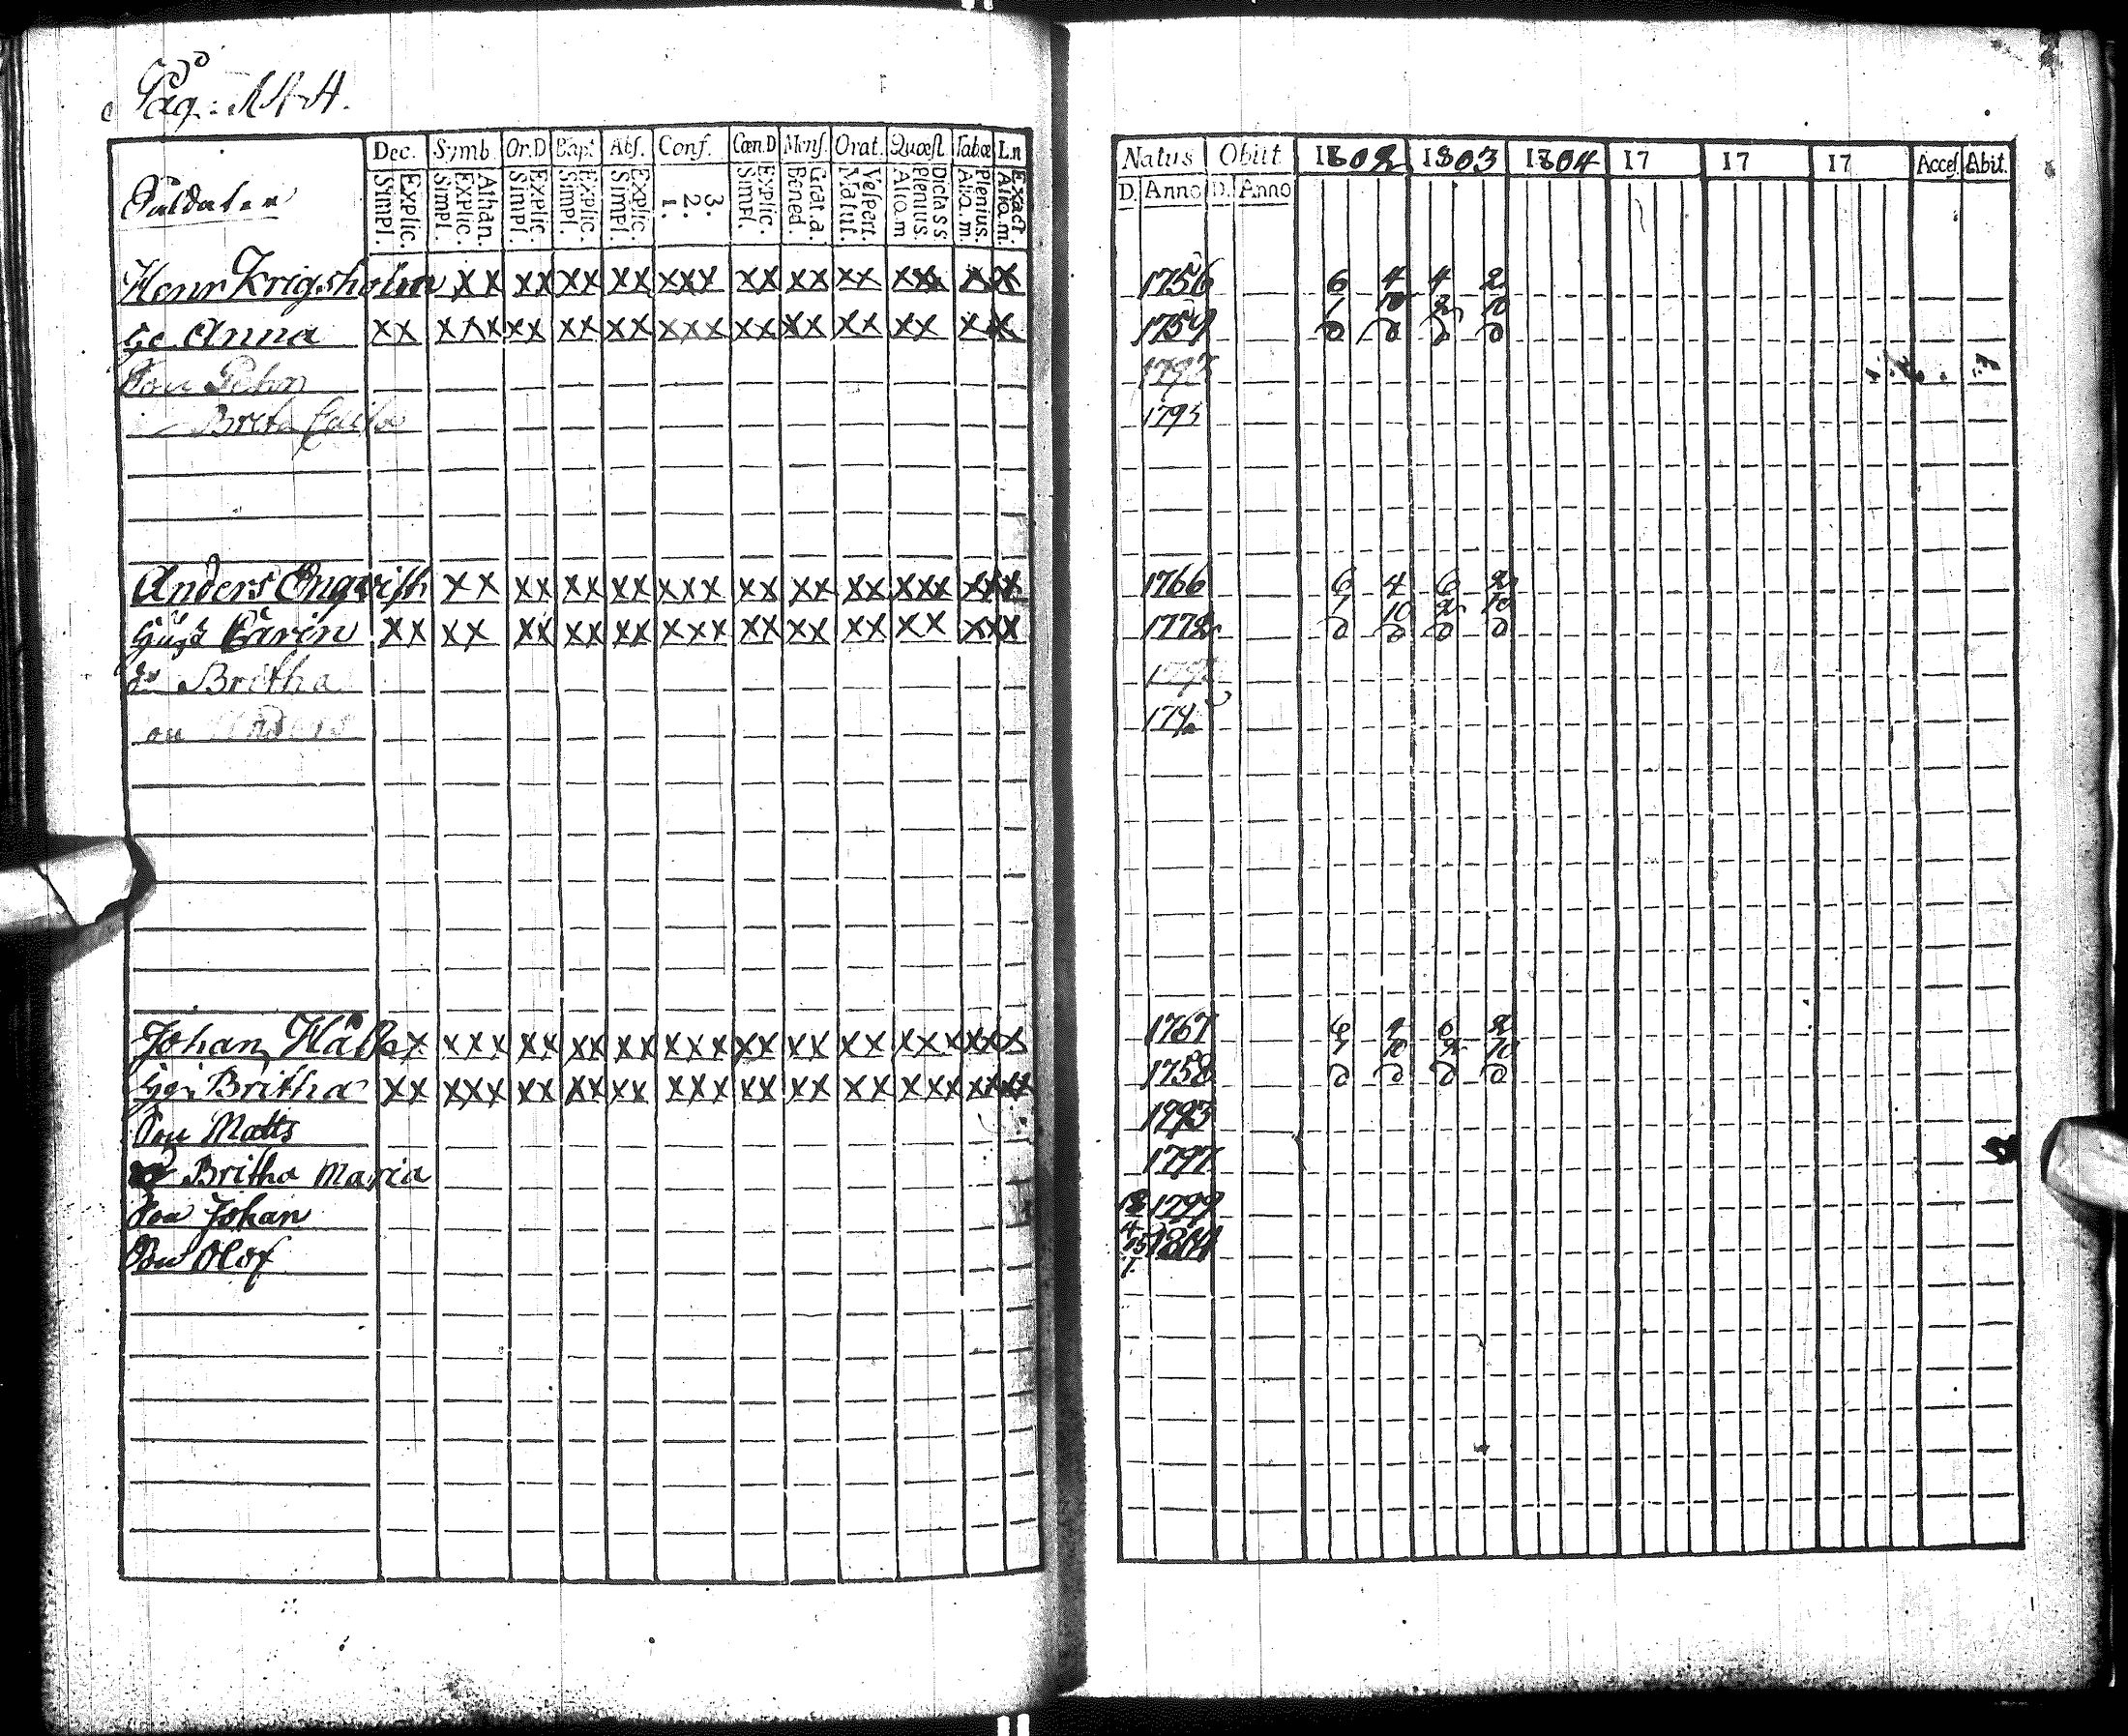 Pag: 144.
Dec. Symb. Or.D Bapt Abs. Conf. Cœn.D Mens. Orat. Quæst. Tabæ Ln
Simpl. Explic. Simpl. Explic. Athan. Simpl. Explic. Simpl. Explic. Simpl. Explic. 1. 2. 3. Simpl. Explic. Bened. Grat.a. Matut. Vespert. Alio.m Plenius. Dicta ss Alio.m. Plenius. Alio.m. Exact.
Natus Obiit 1802 1803 1804 17 17 17 Acces. Abit.
D. Anno D. Anno
Soldater
Henr Krigsholm xx xx xx xx xxx xx xx xx xxx xx x 1756 6 4 4 2
Anna xx xxx xx xx xx xxx xx xx xx xx x x 1759 1 10 2 10
Son
Brita Caisa 1795
Anders Engqvist xx xx xx xx xxx xx xx xx xxx xx x 1766 6 4 6 2
Hust Carin xx xx xx xx xx xxx xx xx xx xx xx x 1772 1 10 2 10
Britha
Johan x xxx xx xx xx xxx xx xx xx xxx xx x 1767 6 4 6 2
Britha xx xxx xx xx xx xxx xx xx xx xxx xx xx 1758 1 10 2 10
Son Matts 1793
Britha Maria 1797
Son Johan 18/4 1799
Son Olof 25/7 1804